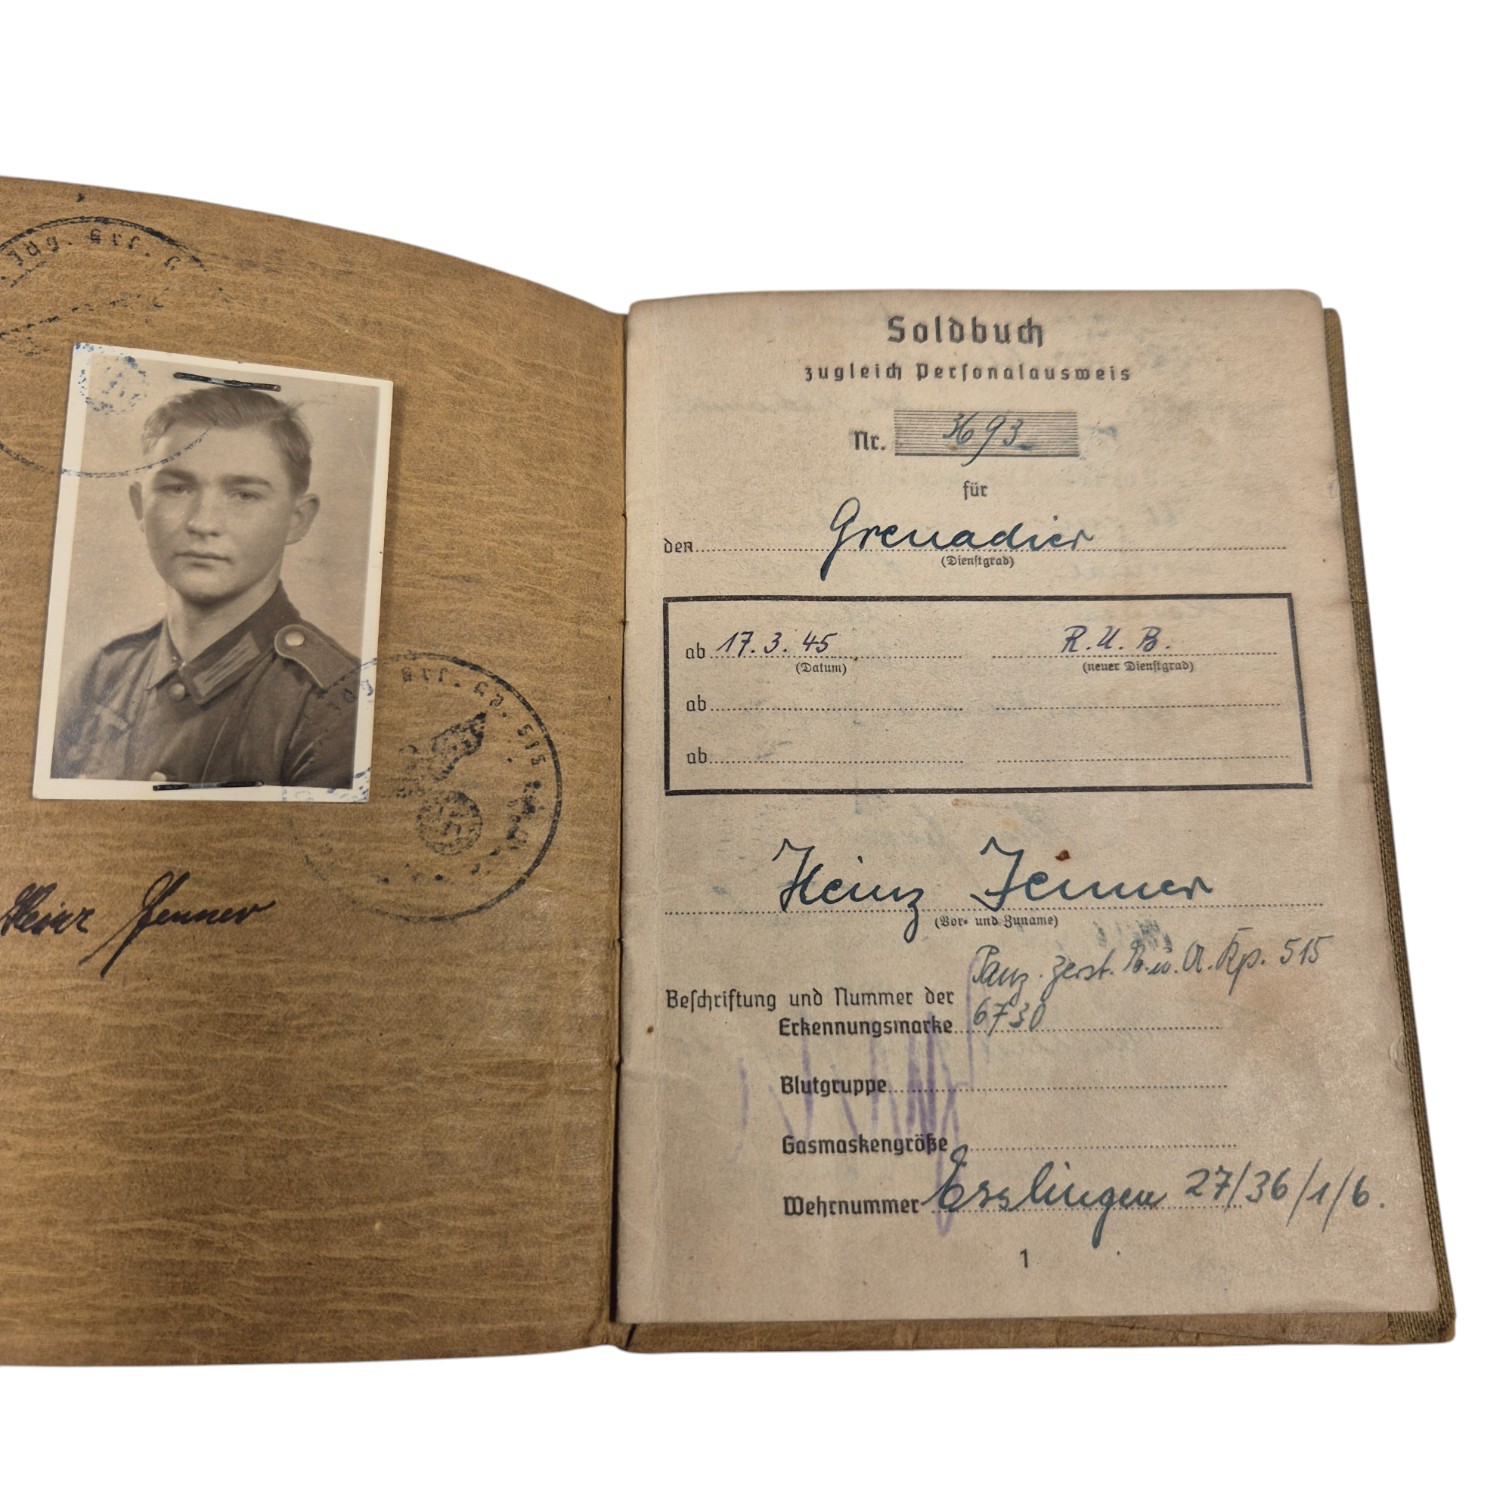 Heinz Jenner
Soldbuch
zugleich Personalausweis
Nr. 3693
für
den Grenadier
(Dienstgrad)
ab 17. 3. 45 R. U. B.
(Datum) (neuer Dienstgrad)
ab
ab
Heinz Jenner
(Vor- und Zuname)
Panz. Zerst. B. u. A. Kp. 515
Beschriftung und Nummer der
Erkennungsmarke 6730
Blutgruppe
Gasmaskengröße
Wehrnummer Esslingen 27/36/1/6.
1